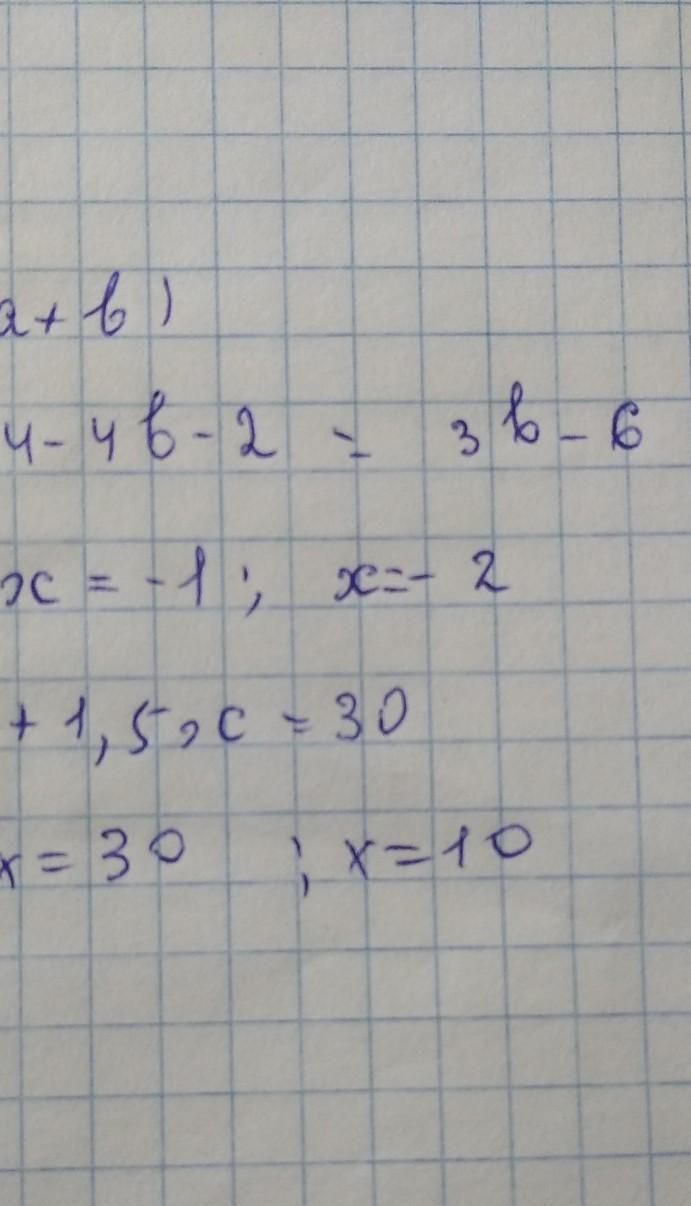 a + b)
4 - 4b - 2 = 3b - 6
x = -1; x = - 2
+ 1,5x = 30
x = 30 ; x = 10